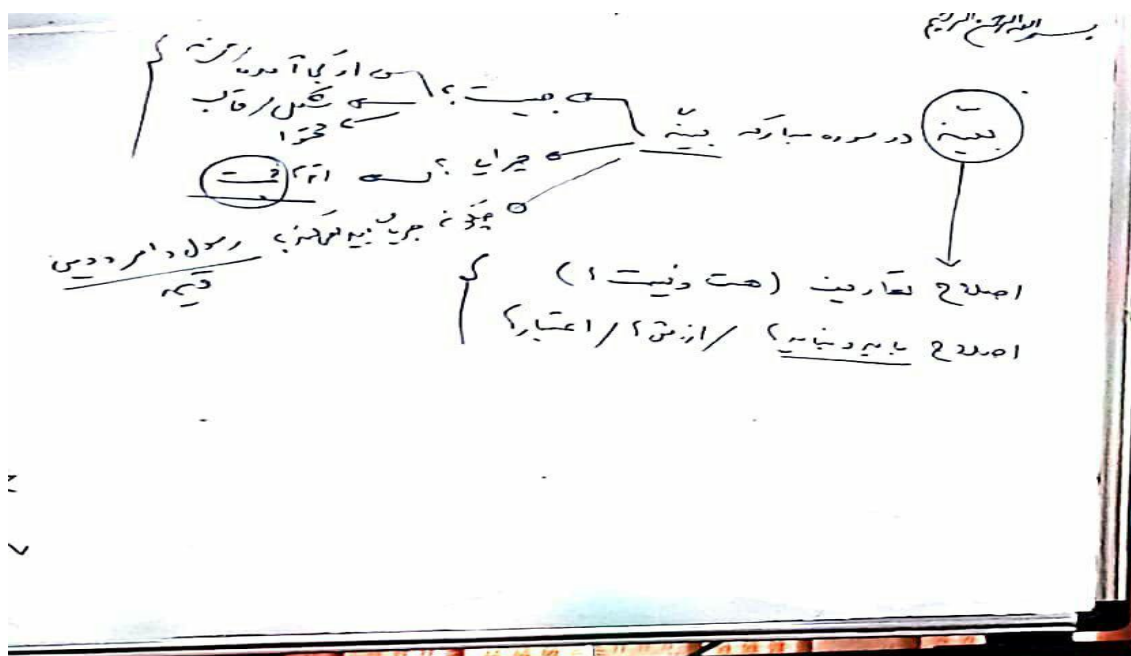 بسم الله الرحمن الرحیم
بیّنه در سوره مبارکه بیّنه
چیست؟
از کجا آمده
شکل / قالب
محتوا
چرایی؟
چگونه جریان پیدا می‌کند؟ رسول و امر و دین
قیمه
اصلاح تعاریف (هست و نیست ها)
اصلاح باید و نباید؟ / ارزش؟ / اعتبار؟